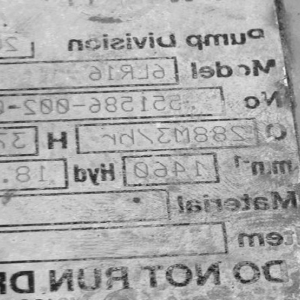 Pump Division
Model 6LR16
No 551586-002-0
Q 288M3/hr H 3
min-1 1460 Hyd 18.
Material
Item
DO NOT RUN DR